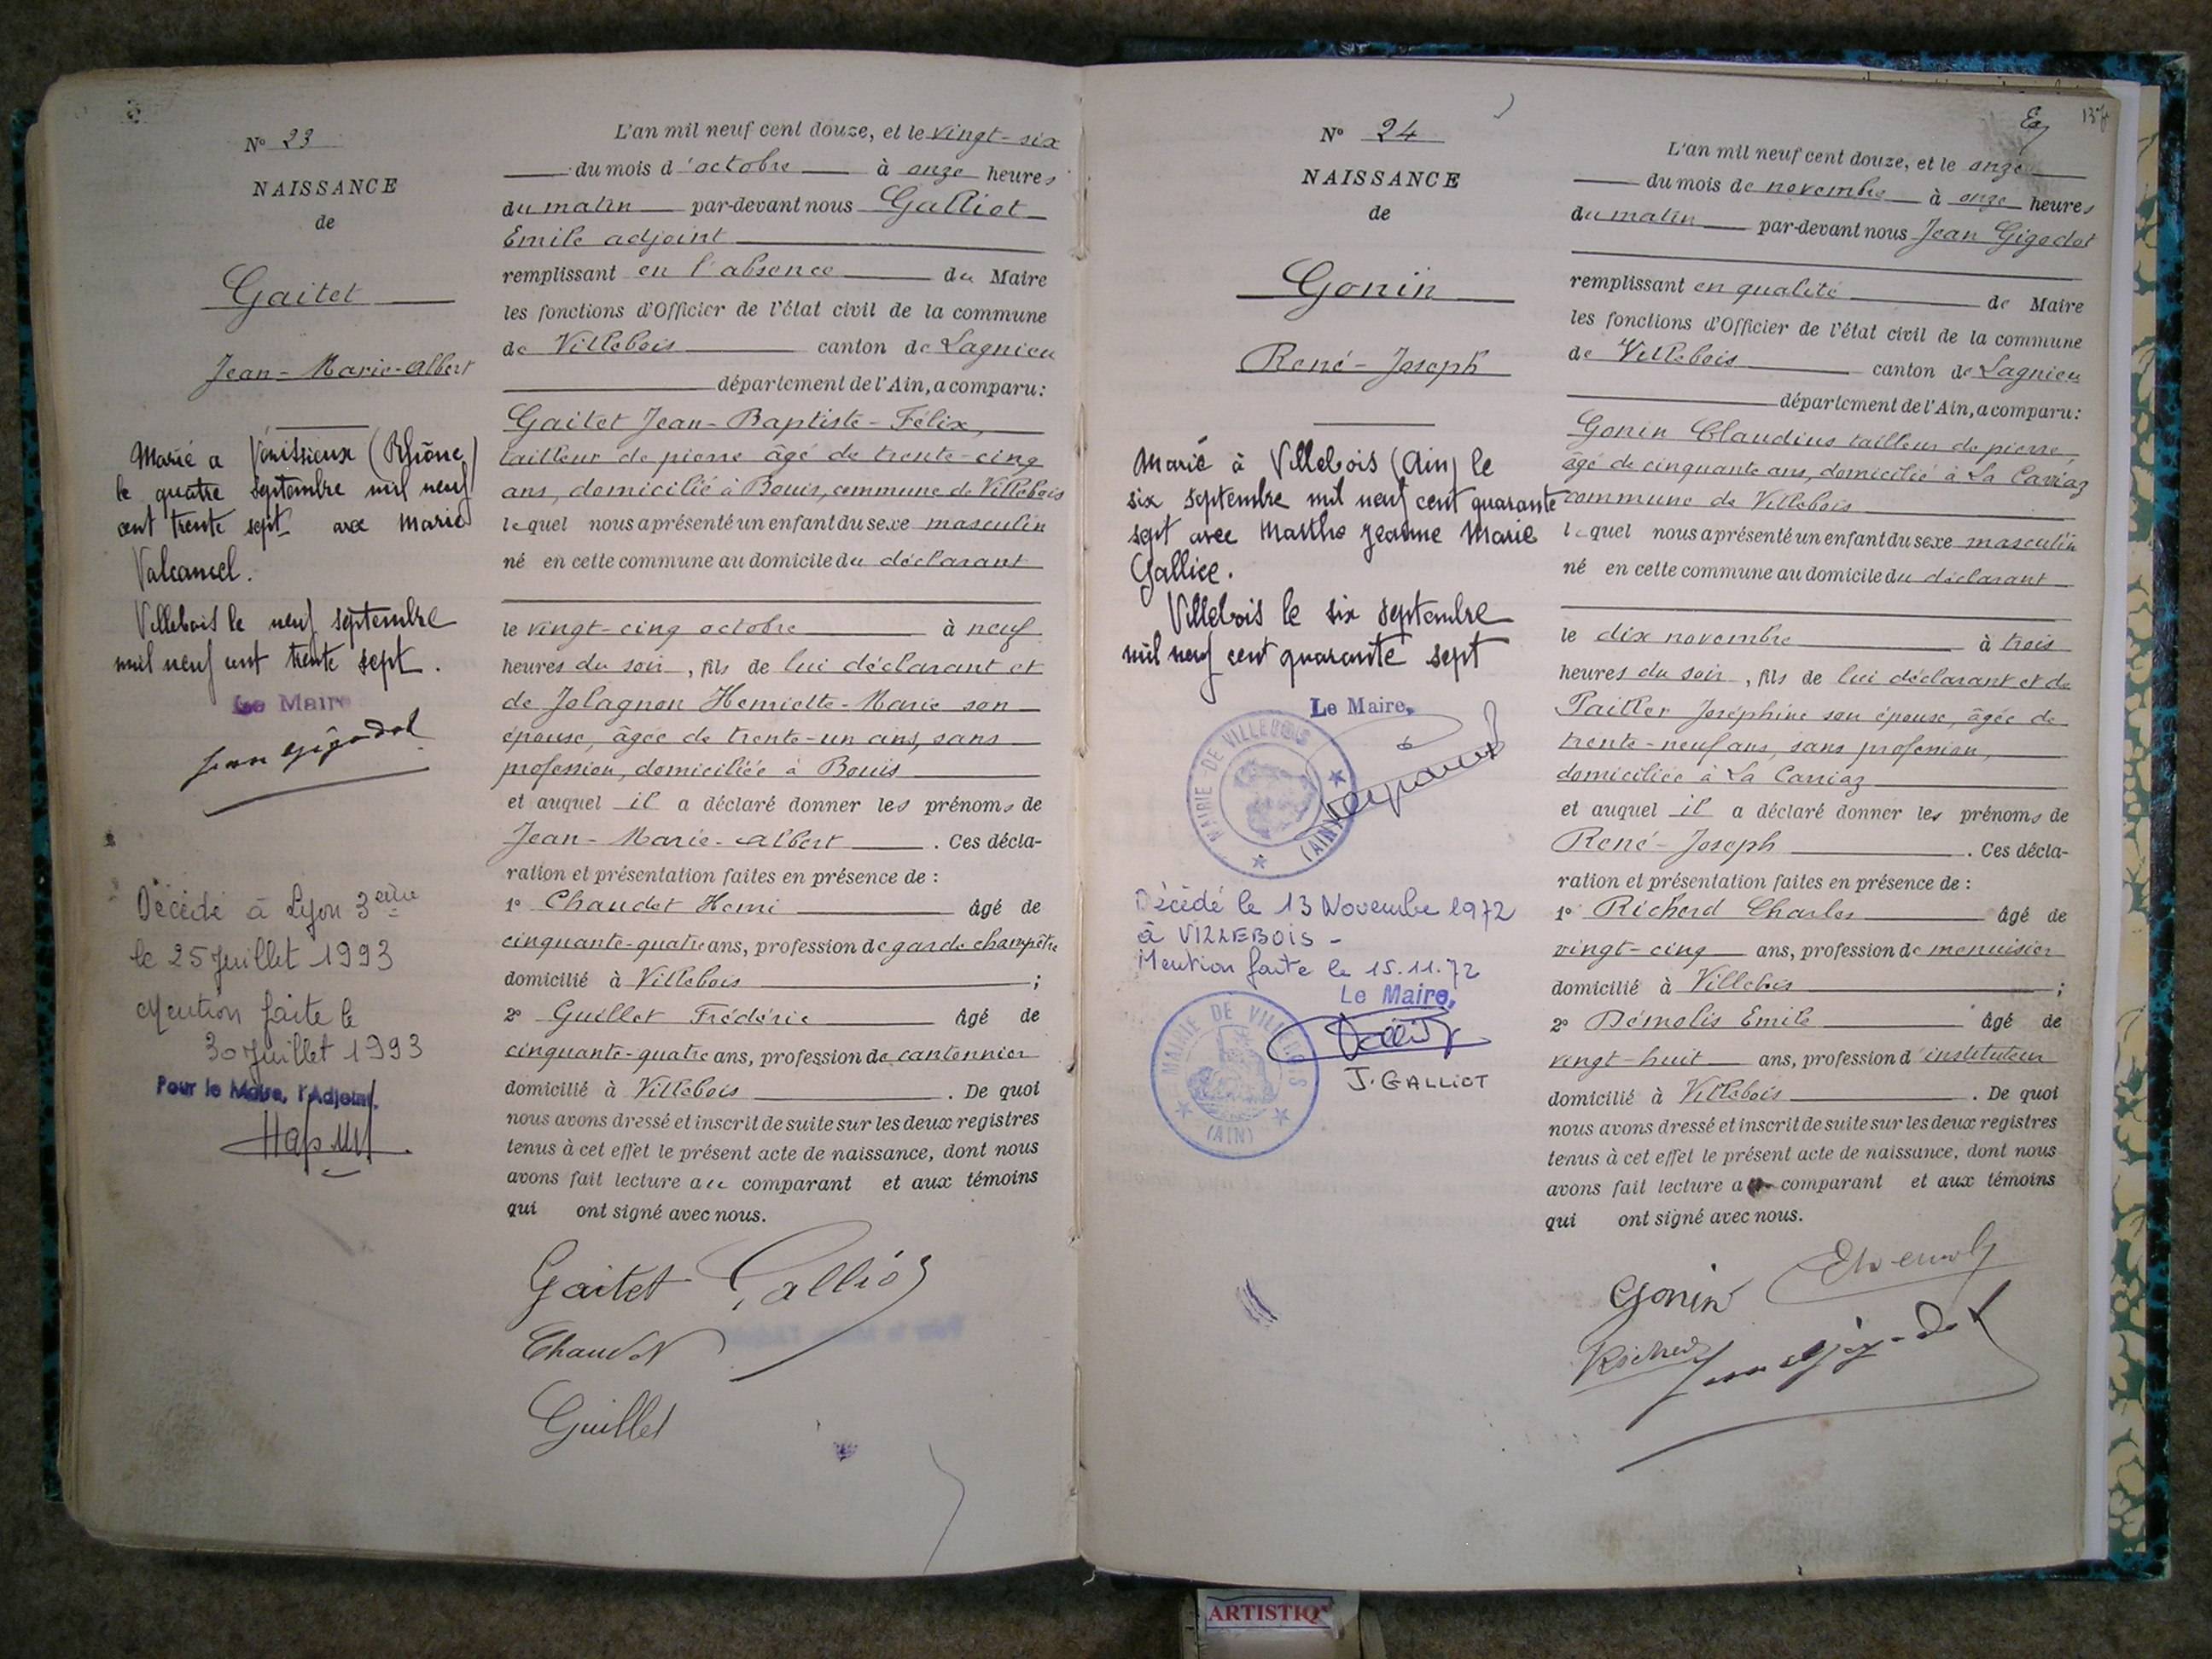 N° 23
NAISSANCE
de
Gaitet
Jean-Marie-Albert
Marié a Vénissieux (Rhône)
le quatre septembre mil neuf
cent trente sept avec Marie
Valcancel.
Villebois le neuf septembre
mil neuf cent trente sept.
Le Maire
Jean Gigodot
Décédé à Lyon 3eme
le 25 Juillet 1993
Mention faite le
30 Juillet 1993
Pour le Maire, l'Adjoint.
L'an mil neuf cent douze, et le vingt-six
du mois d'octobre à onze heures
du matin par-devant nous Galliot
Emile adjoint
remplissant en l'absence du Maire
les fonctions d'Officier de l'état civil de la commune
de Villebois canton de Lagnieu
département de l'Ain, a comparu:
Gaitet Jean-Baptiste-Félix,
tailleur de pierre âgé de trente-cinq
ans, domicilié à Bouis, commune de Villebois
lequel nous a présenté un enfant du sexe masculin
né en cette commune au domicile du déclarant
le vingt-cinq octobre à neuf
heures du soir, fils de lui déclarant et
de Jolagnon Henriette-Marie son
épouse, âgée de trente-un ans, sans
profession, domiciliée à Bouis
et auquel il a déclaré donner les prénoms de
Jean-Marie-Albert. Ces décla-
ration et présentation faites en présence de :
1° Chaudet Henri âgé de
cinquante-quatre ans, profession de garde champêtre
domicilié à Villebois ;
2° Guillet Frédéric âgé de
cinquante-quatre ans, profession de cantonnier
domicilié à Villebois. De quoi
nous avons dressé et inscrit de suite sur les deux registres
tenus à cet effet le présent acte de naissance, dont nous
avons fait lecture au comparant et aux témoins
qui ont signé avec nous.
Gaitet Galliot
Chaudet
Guillet
N° 24
NAISSANCE
de
Gonin
René-Joseph
Marié à Villebois (Ain) le
six septembre mil neuf cent quarante
sept avec Marthe Jeanne Marie
Gallice.
Villebois le six septembre
mil neuf cent quarante sept
Le Maire,
MAIRIE DE VILLEBOIS
(AIN)
Décédé le 13 Novembre 1972
à VILLEBOIS -
Mention faite le 15.11.72
Le Maire,
MAIRIE DE VILLEBOIS
(AIN)
J. GALLIOT
137
L'an mil neuf cent douze, et le onze
du mois de novembre à onze heures
du matin par-devant nous Jean Gigodot
remplissant en qualité de Maire
les fonctions d'Officier de l'état civil de la commune
de Villebois canton de Lagnieu
département de l'Ain, a comparu:
Gonin Claudius tailleur de pierre,
âgé de cinquante ans, domicilié à La Carriaz
commune de Villebois
lequel nous a présenté un enfant du sexe masculin
né en cette commune au domicile du déclarant
le dix novembre à trois
heures du soir, fils de lui déclarant et de
Pailler Joséphine son épouse, âgée de
trente-neuf ans, sans profession,
domiciliée à La Carriaz
et auquel il a déclaré donner les prénoms de
René-Joseph. Ces décla-
ration et présentation faites en présence de :
1° Richerd Charles âgé de
vingt-cinq ans, profession de menuisier
domicilié à Villebois ;
2° Démolis Emile âgé de
vingt-huit ans, profession d'instituteur
domicilié à Villebois. De quoi
nous avons dressé et inscrit de suite sur les deux registres
tenus à cet effet le présent acte de naissance, dont nous
avons fait lecture au comparant et aux témoins
qui ont signé avec nous.
Gonin
Richerd Jean Gigodot
ARTISTIQ